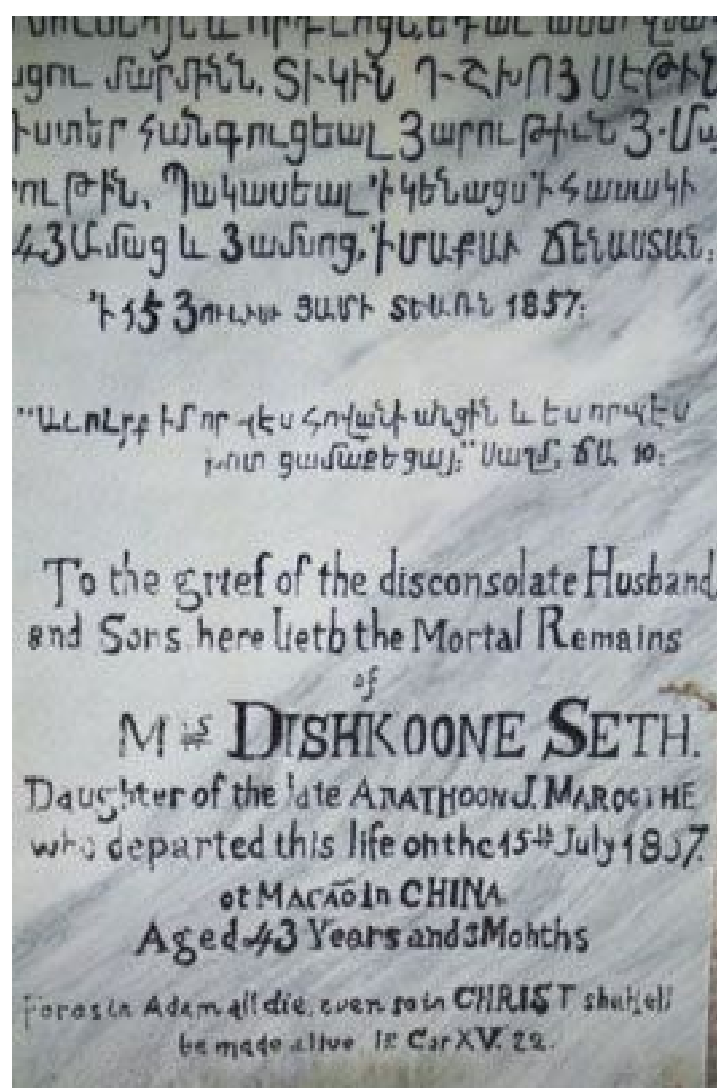 ցու մարմինն. ՏԻԿԻՆ ԴՇԽՈՅ ՍԵԹԻՆ
դստեր հանգուցեալ Յարութիւն Յ. Մա
րութին. Պակասեալ ՚ի կենացս ՚ի հասակի
43 Ամաց և 3 ամսոց. ՚ի ՄԱՔԱՒ ՃԵՆԱՍՏԱՆ։
՚Ի 15 Յուլիս ՅԱՄԻ ՏԵԱՌՆ 1857։
"Աւուրք իմ որպէս հովանի անցին և ես որպէս
խոտ ցամաքեցայ։" Սաղմ. ՃԱ. 10։
To the grief of the disconsolate Husband
and Sons here lieth the Mortal Remains
of
Mrs DISHKOONE SETH.
Daughter of the late ARATHOON J.
who departed this life on the 15th July 1857.
at MACAO in CHINA
Aged 43 Years and 3 Months
For as in Adam all die, even so in CHRIST shall all
be made alive. Ir Cor XV. 22.